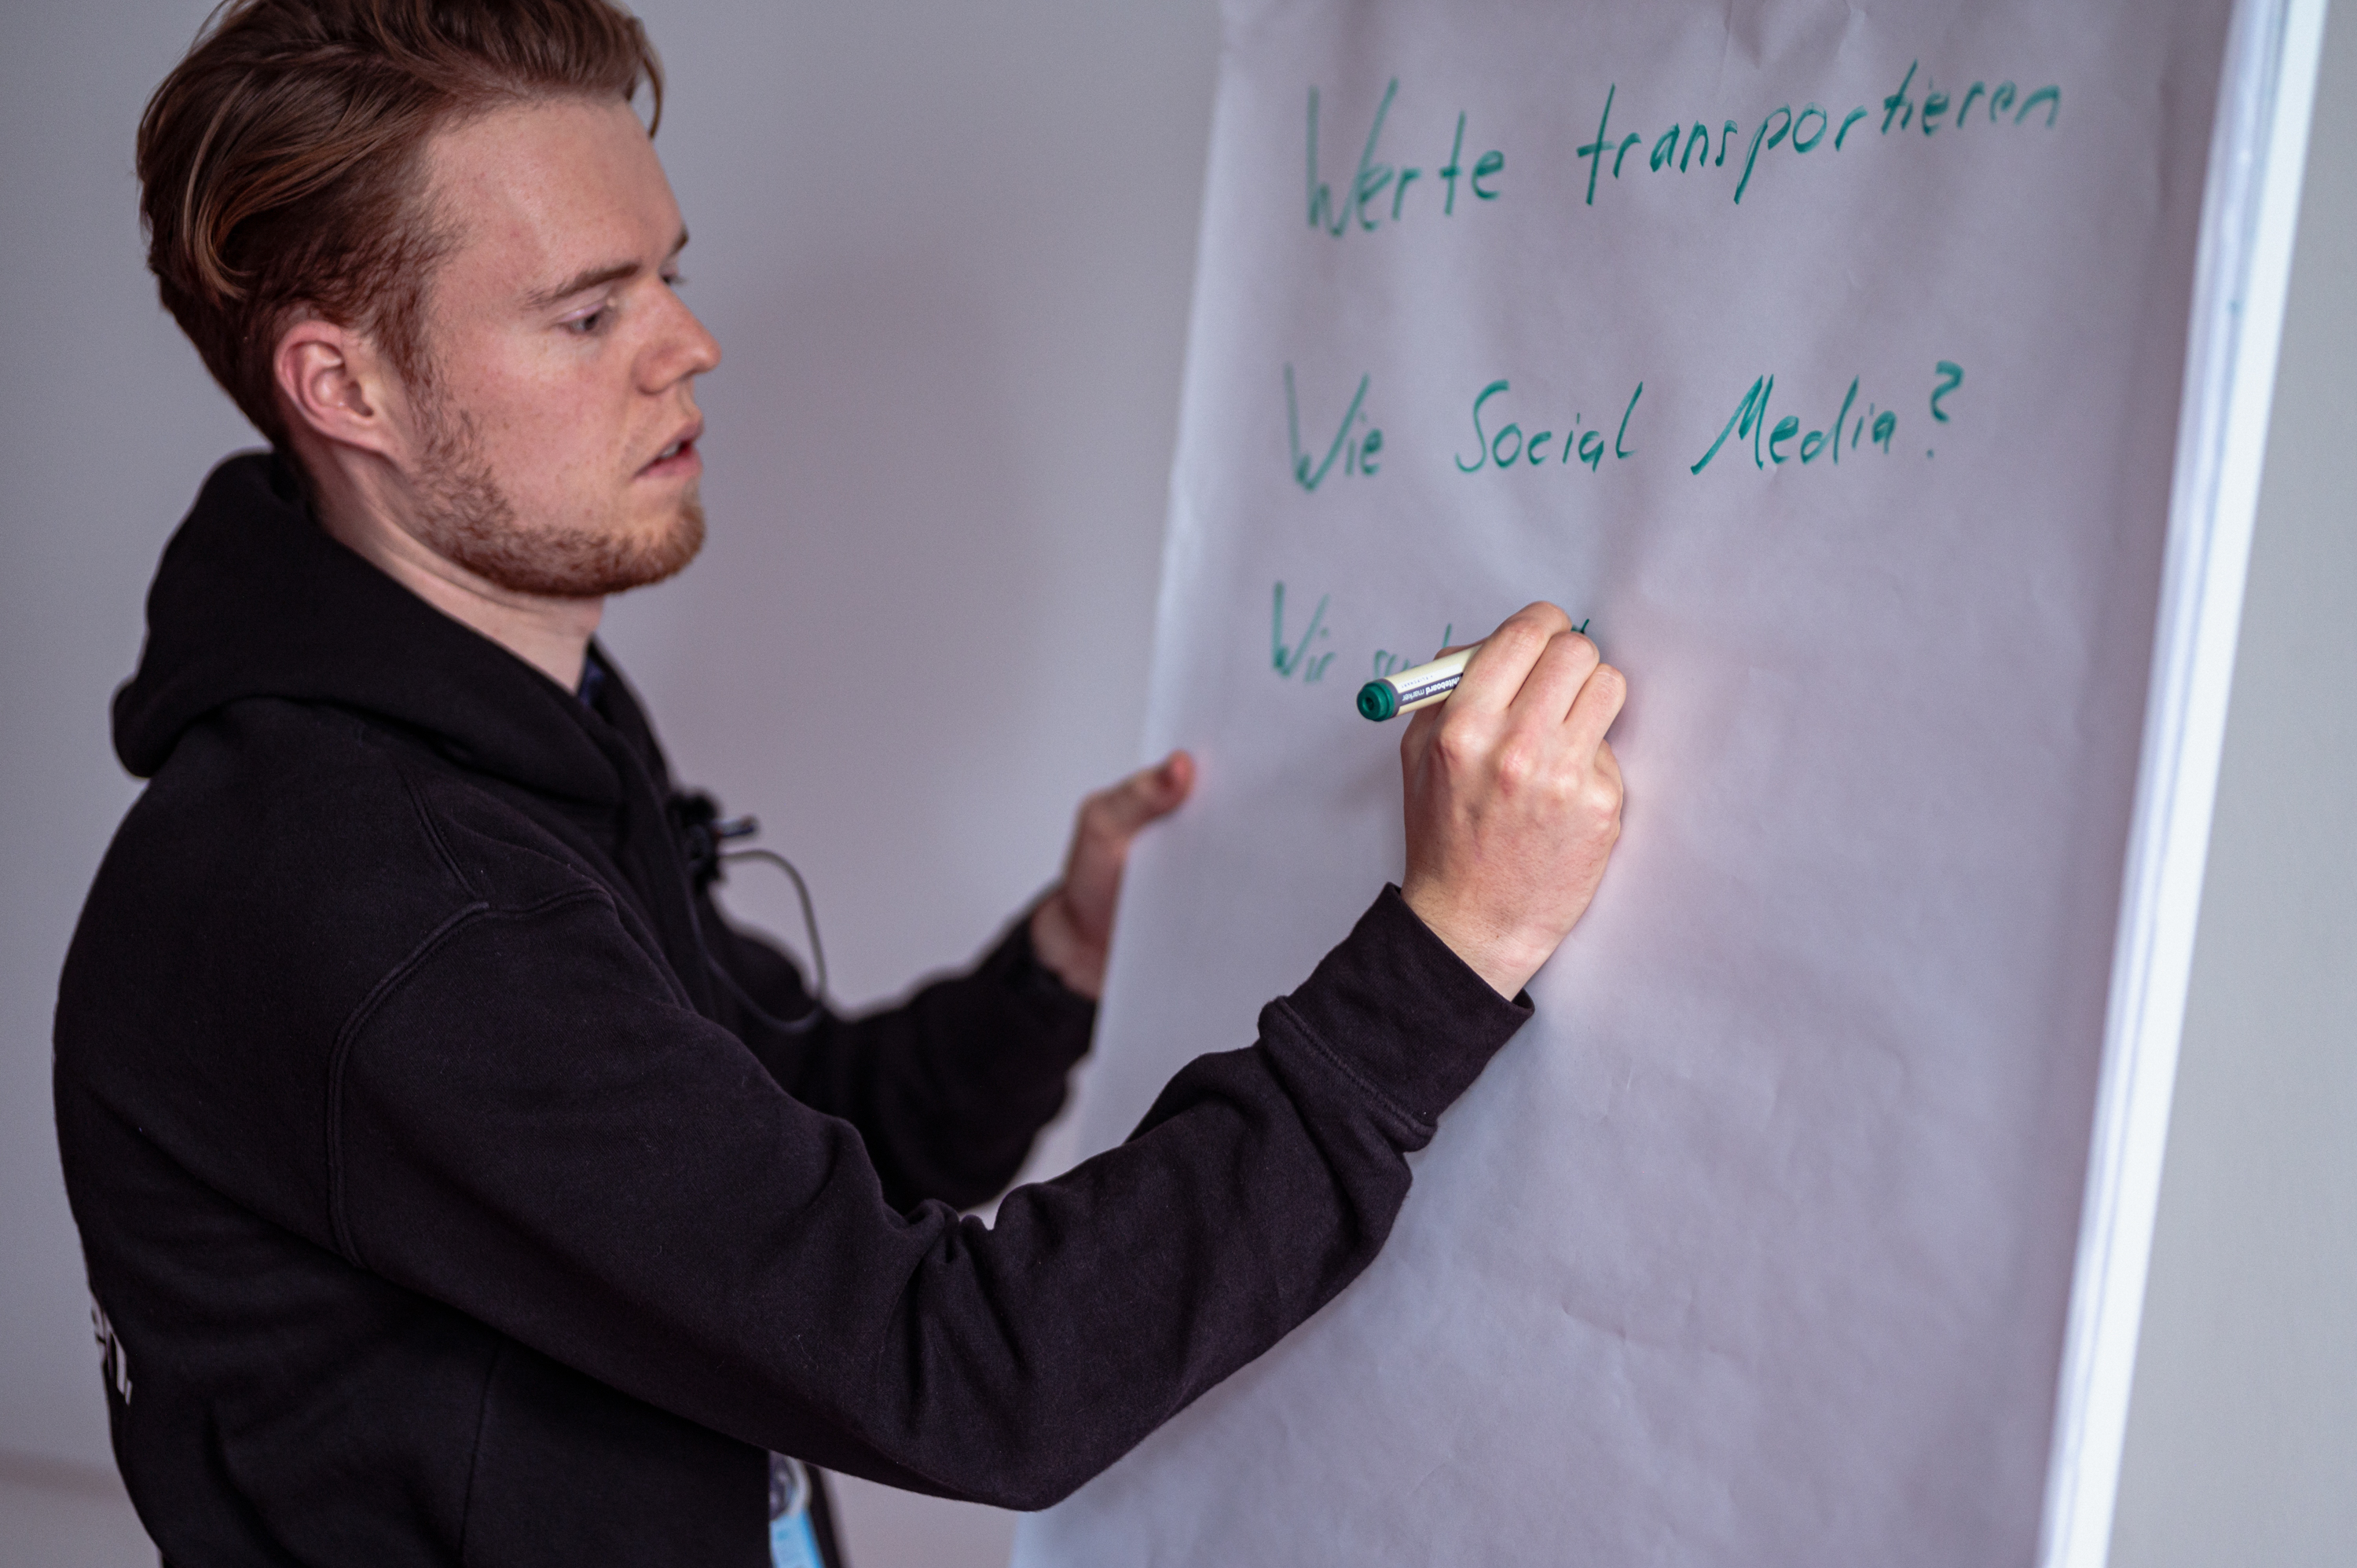 Werte transportieren
Wie Social Media?
Wir
whiteboard marker